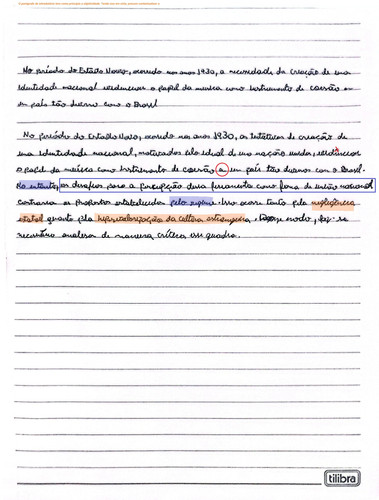 No período do Estado Novo, ocorrido nos anos 1930, a necessidade da criação de uma
identidade nacional evidenciou o papel da música como instrumento de coesão em
um país tão diverso como o Brasil
No período do Estado Novo, ocorrido nos anos 1930, as tentativas de criação de
uma identidade nacional, motivadas pelo ideal de uma nação unida, evidenciou
o papel da música como instrumento de coesão a um país tão diverso com o Brasil.
No entanto, os desafios para a percepção dessa ferramenta como forma de união nacional
contraria os propostos estabelecidos pelo regime. Isso ocorre tanto pela negligência
estatal quanto pela supervalorização da cultura estrangeira. Desse modo, faz-se
necessário analisar de maneira crítica esse quadro.
tilibra